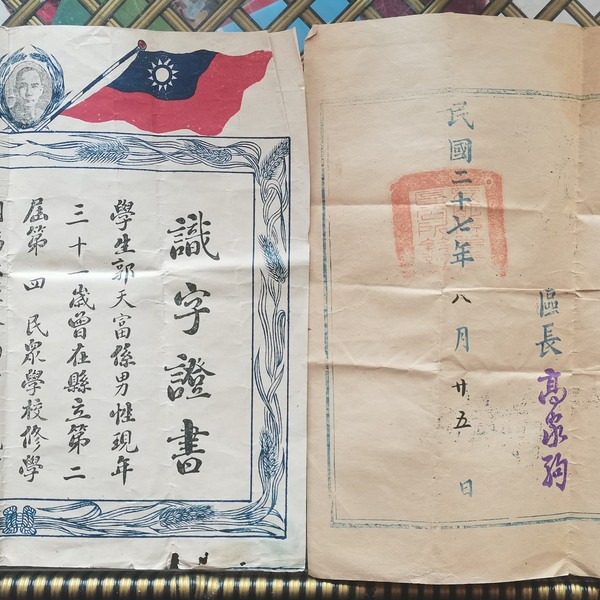 識字證書
學生郭天富係男性現年
三十一歲曾在縣立第二
屆第四民眾學校修學
區長高
民國二十七年八月廿五日